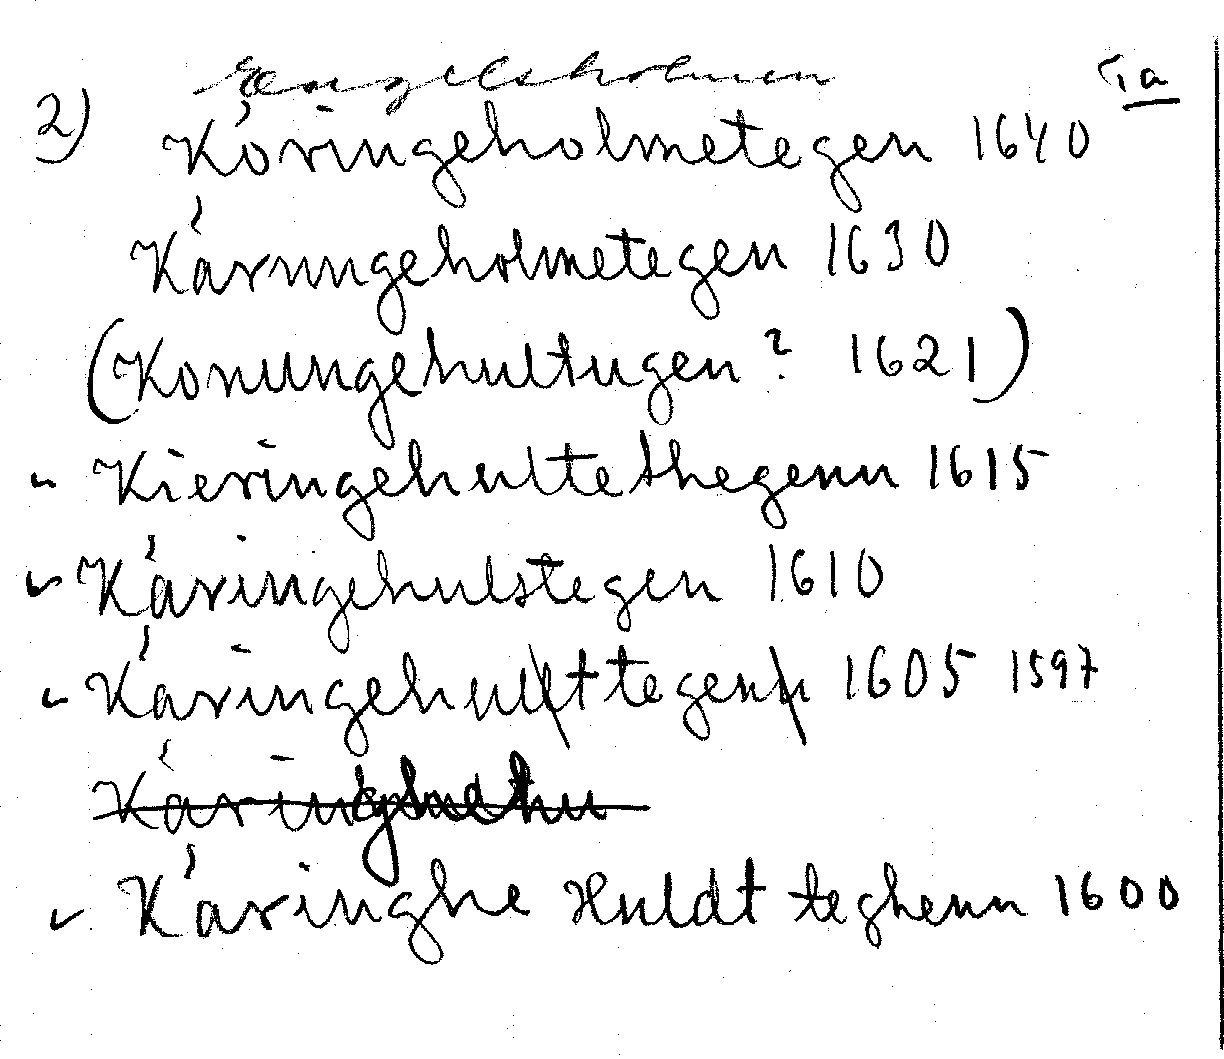 Engelsholmen
Ta
2) Köringeholmetegen 1640
Kärungeholmetegen 1630
(Konungehultugen? 1621)
Kieringehultethegenn 1615
Käringehulstegen 1610
Käringehullttegenn 1605 1597
Käringhe Huldt teghenn 1600